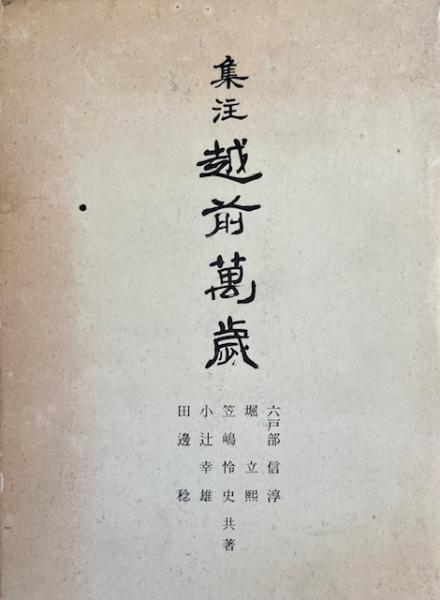 集注
越前萬歳
六戸部信淳
堀立熙
笠嶋怜史共著
小辻幸雄
田邊稔